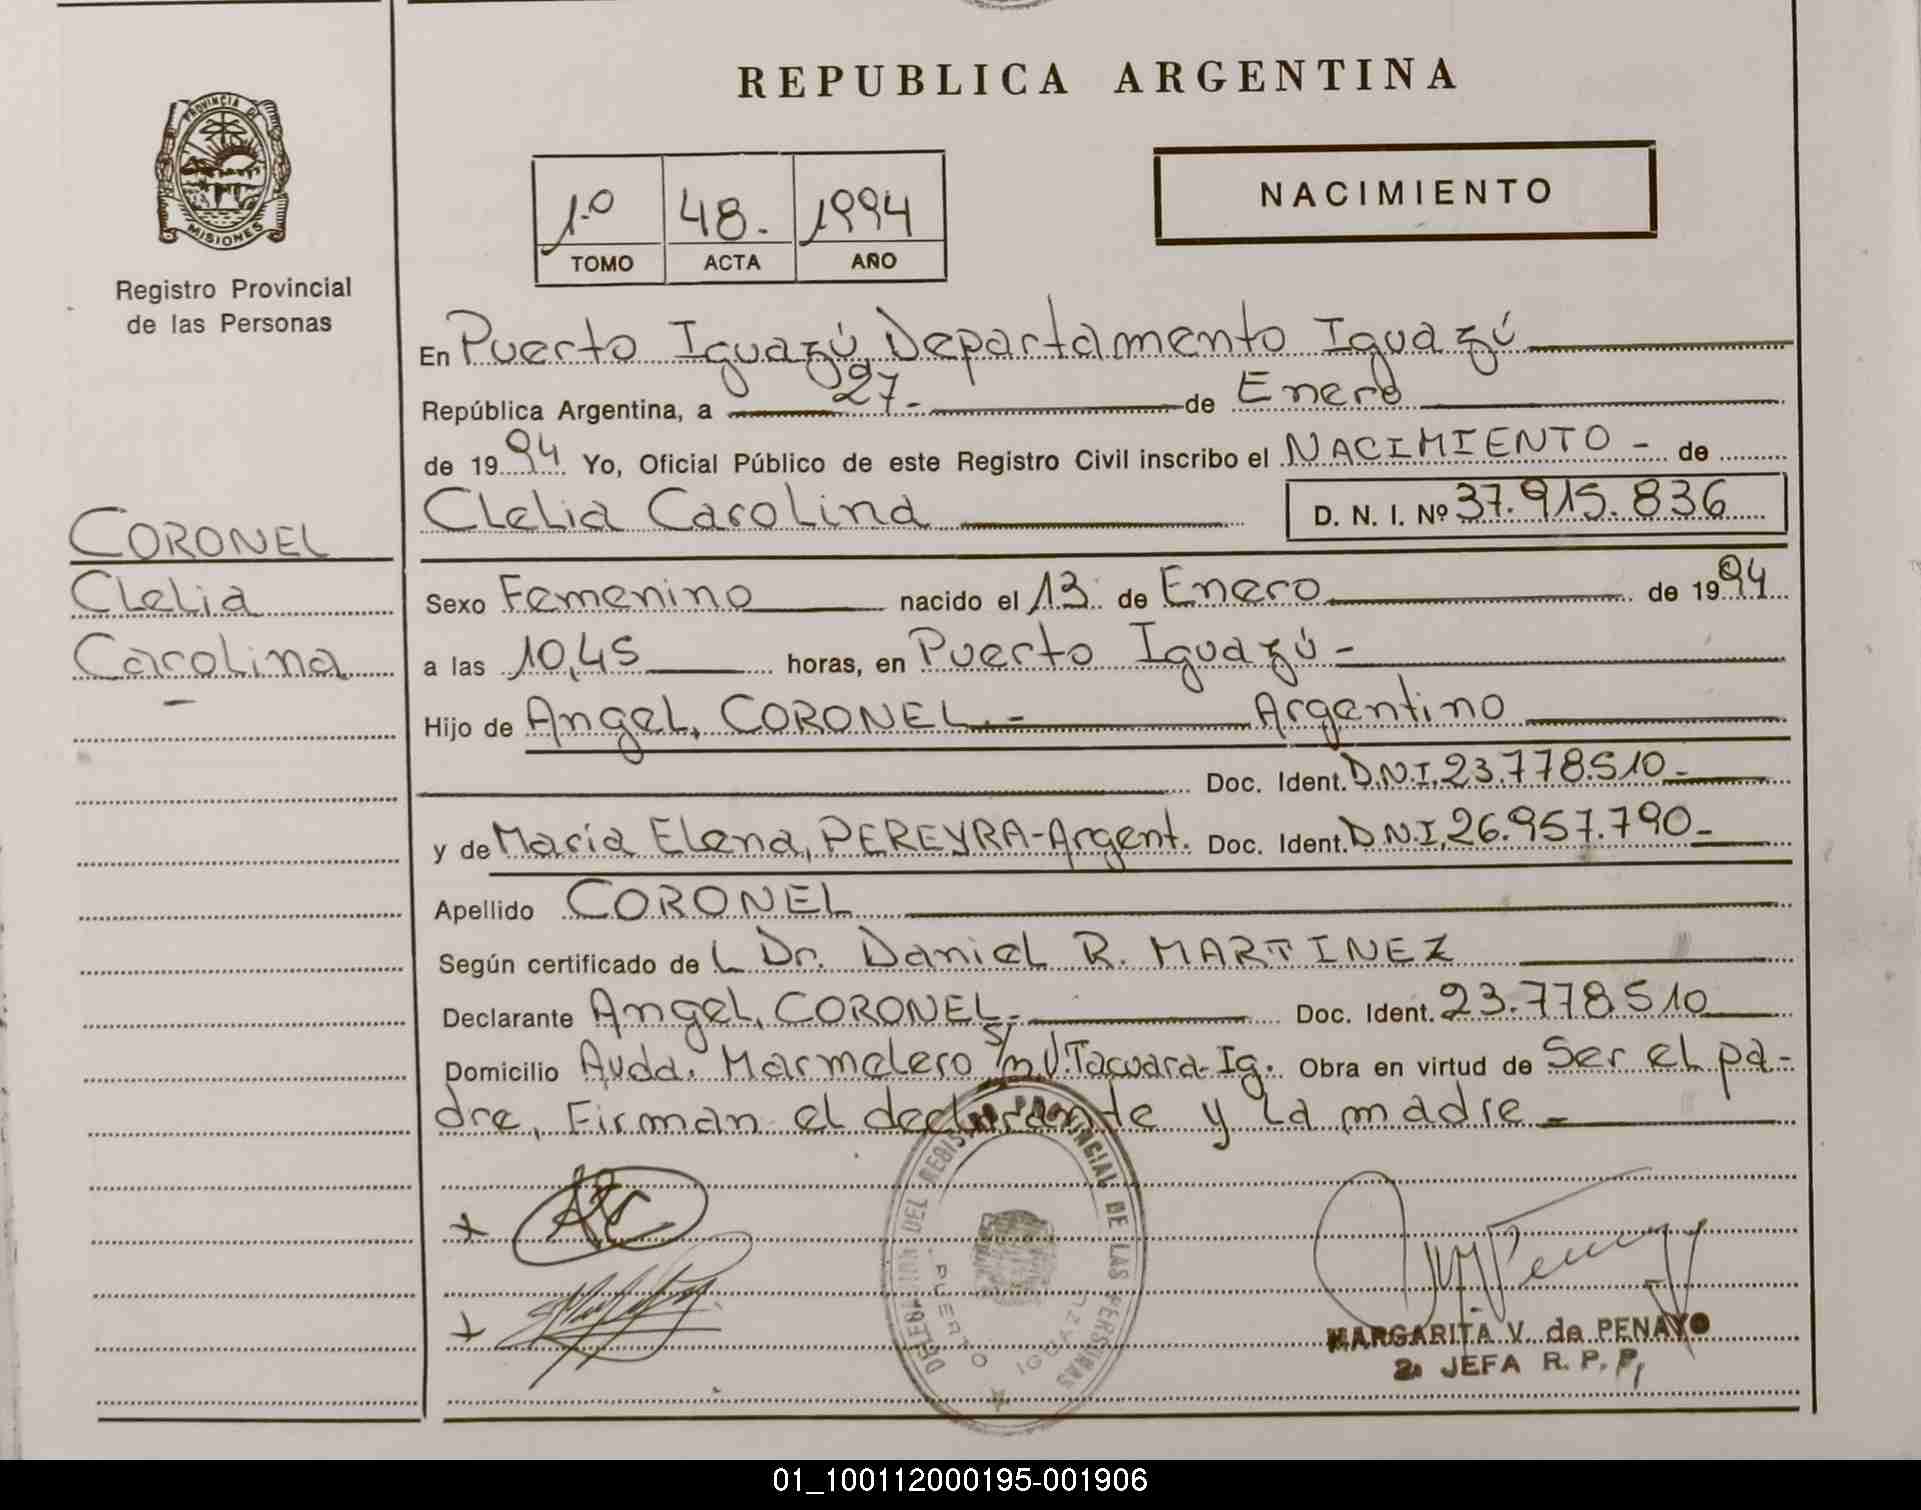 REPUBLICA ARGENTINA
PROVINCIA DE
MISIONES
Registro Provincial
de las Personas
1º 48. 1994
TOMO ACTA AÑO
NACIMIENTO
En Puerto Iguazú, Departamento Iguazú
República Argentina, a 27.- de Enero
de 1994 Yo, Oficial Público de este Registro Civil inscribo el NACIMIENTO - de
Clelia Carolina D. N. I. Nº 37.915.836
CORONEL
Clelia
Carolina
-
Sexo Femenino nacido el 13 de Enero de 1994
a las 10,45 horas, en Puerto Iguazú -
Hijo de Angel, CORONEL.- Argentino
Doc. Ident. D.N.I. 23.778.510-
y de Maria Elena, PEREYRA-Argent. Doc. Ident. D.N.I. 26.957.790-
Apellido CORONEL
Según certificado de L Dr. Daniel R. MARTINEZ
Declarante Angel, CORONEL.- Doc. Ident. 23.778510
Domicilio Avda. Marmelero s/n V. Tacuara-Ig. Obra en virtud de Ser el pa-
dre, Firman el declarante y la madre -
DELEGACION DEL REGISTRO PROVINCIAL DE LAS PERSONAS
PUERTO IGUAZU
MARGARITA V. de PENAYO
2a JEFA R. P. P,
01_100112000195-001906